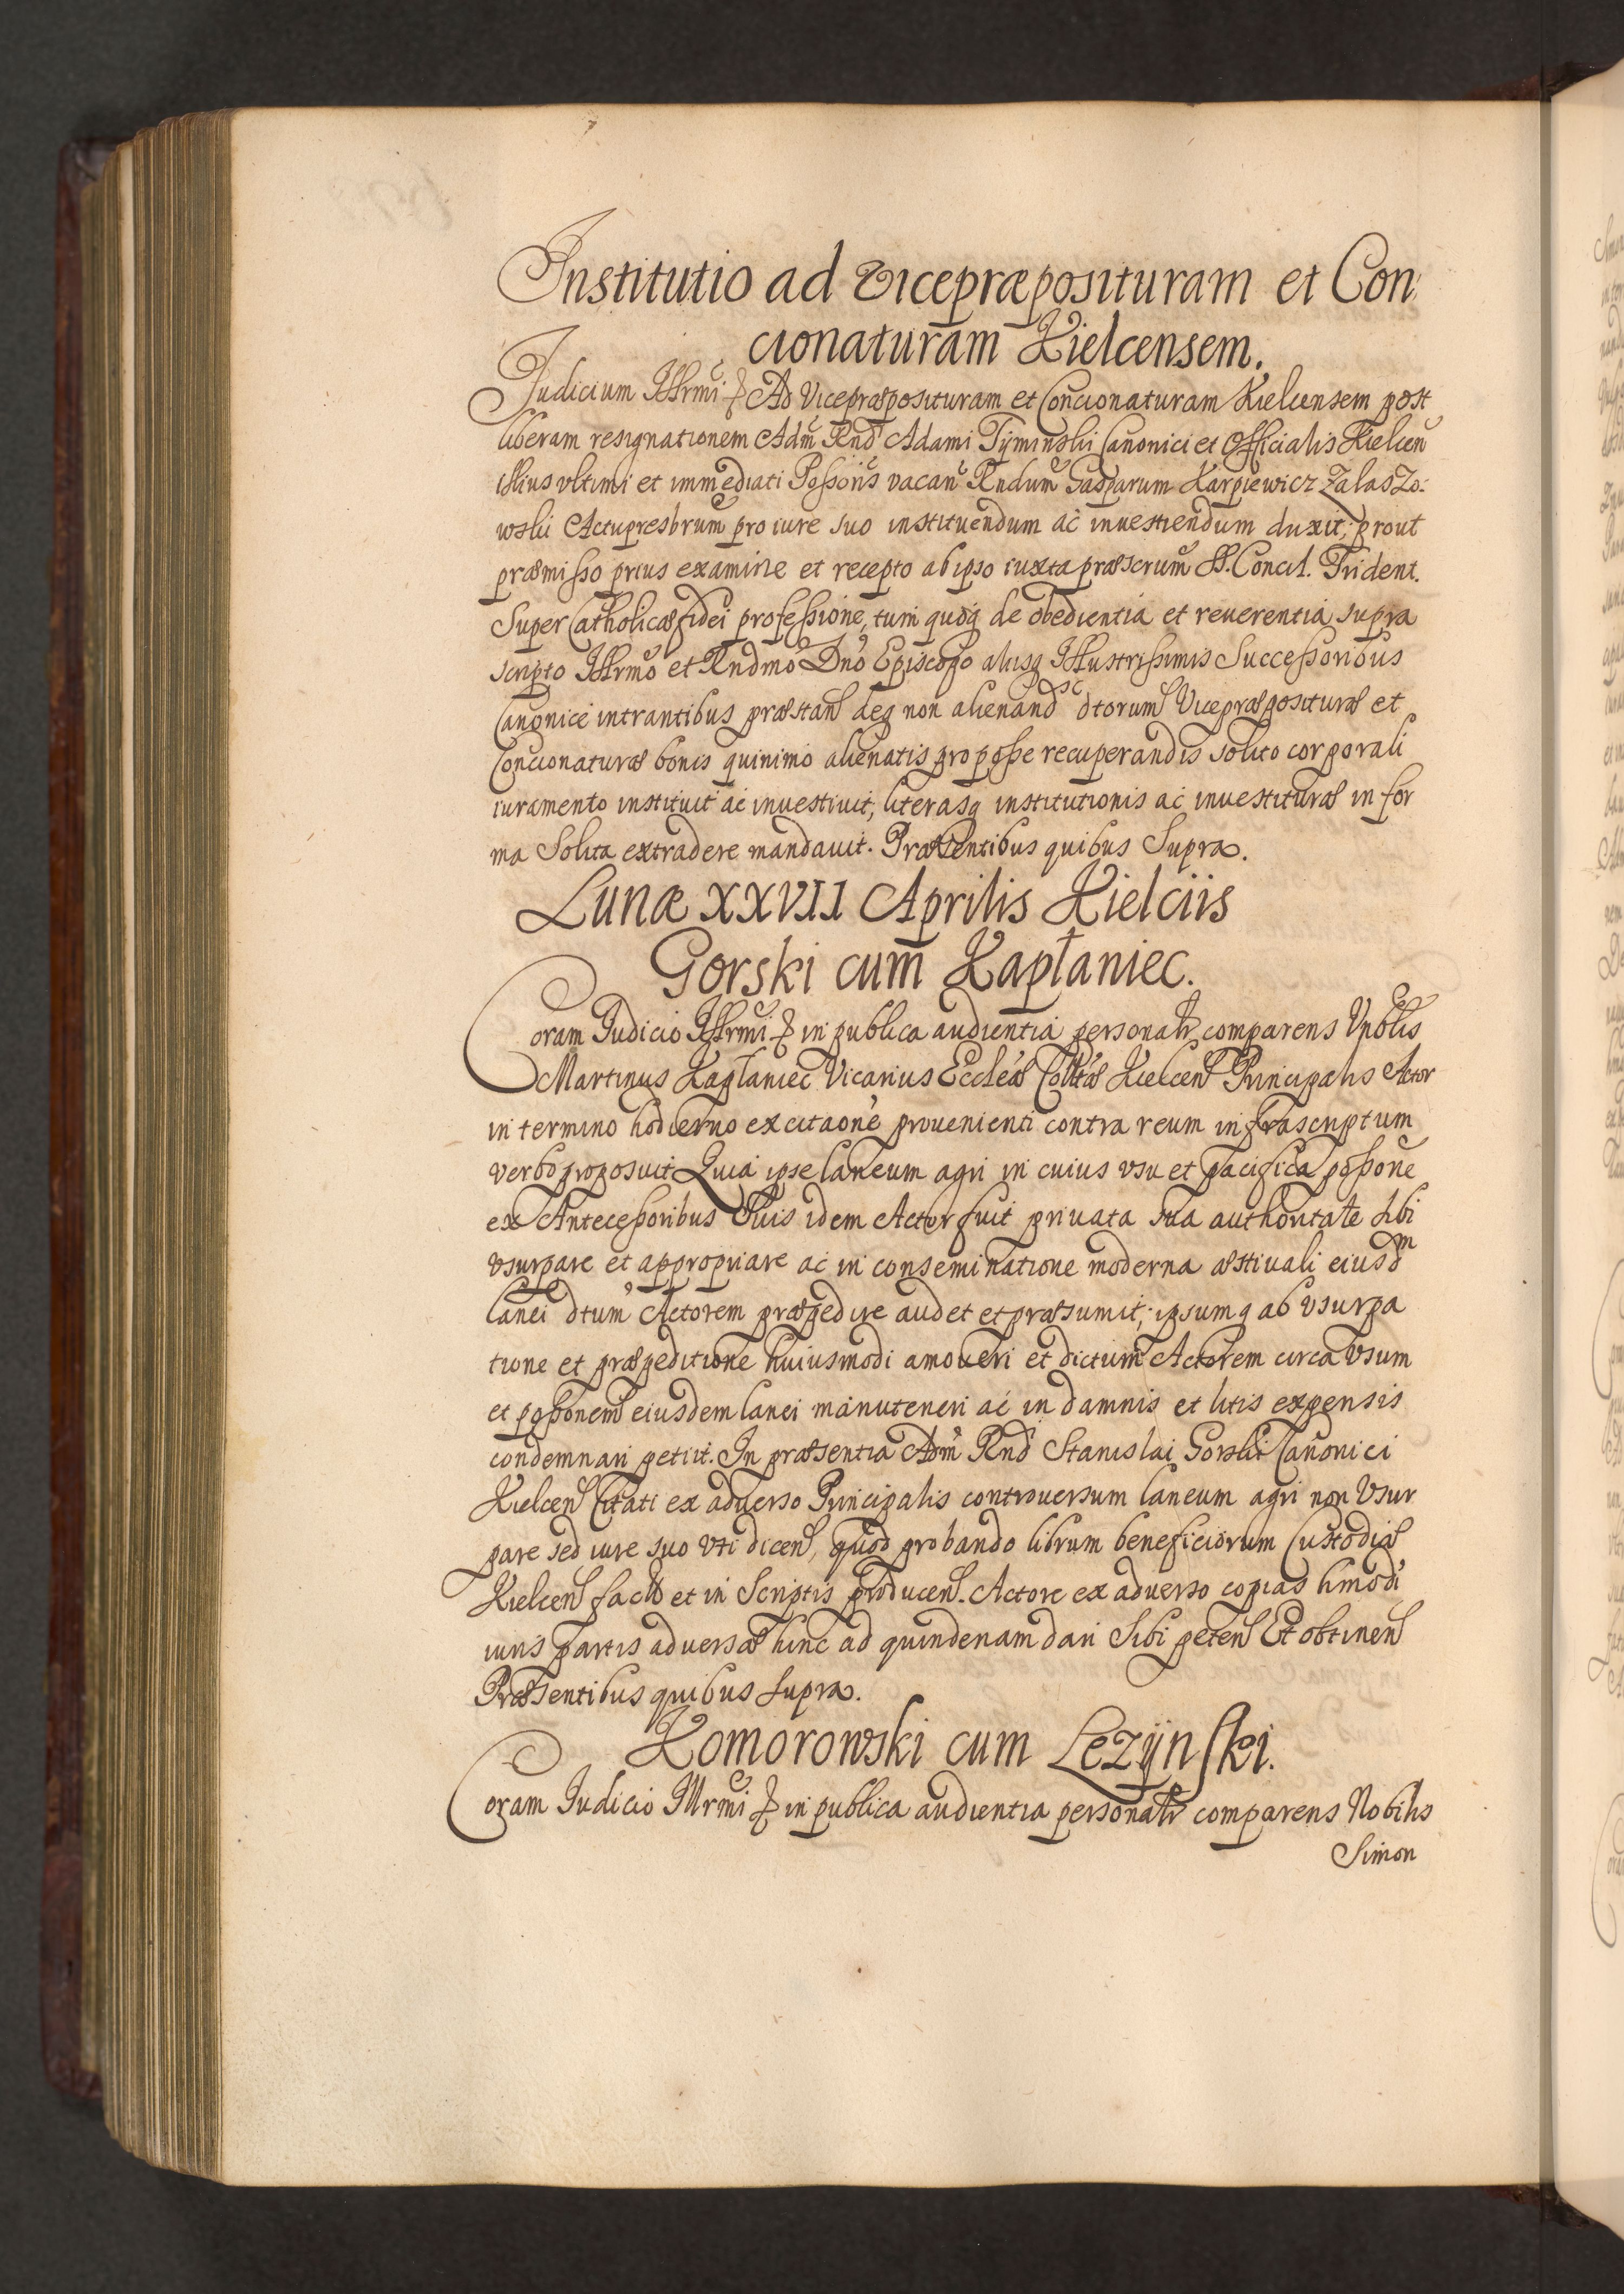 Institutio ad Vicepræposituram et Con
cionaturam Kielcensem.
Judicium Illrmi & Ad Vicepræposituram et Concionaturam Kielcensem post
liberam resignationem Adm Rnd Adami Tyminski Canonici et Officialis Kielcen
illius vltimi et immediati Possoris vacan Rndum Gasparum Karpiewicz Zalaszo-
wski Actupresbrum pro iure suo instituendum ac inuestiendum duxit; prout
præmisso prius examine et recepto ab ipso iuxta præscrum SS. Concil. Trident.
Super Catholicæ fidei professione, tum quoq de obedientia et reuerentia supra
scripto Illrmo et Rndmo Dno Episcopo alijsq Illustrissimis Successoribus
Canonice intrantibus præstan deq non alienand dtorum Vicepræposituræ et
Concionaturæ bonis quinimo alienatis pro posse recuperandis solito corporali
iuramento instituit ac inuestiuit, literasq institutionis ac inuestituræ in for
ma Solita extradere mandauit. Præsentibus quibus Supra.
Lunæ XXVII Aprilis Kielciis
Gorski cum Kapłaniec.
Coram Judicio Illrmi & in publica audientia personalr comparens Vnblis
Martinus Kapłaniec Vicarius Eccleæ Colltæ Kielcen Principalis Actor
in termino hodierno ex citaone prouenienti contra reum infrascriptum
verbo proposuit Quia ipse laneum agri in cuius vsu et pacifica possone
ex Antecessoribus Suis idem Actor fuit priuata sua authoritate sibi
vsurpare et appropriare ac in conseminatione moderna æstiuali eiusdm
lanei dtum Actorem præpedire audet et præsumit; ipsumq ab vsurpa
tione et præpeditione huiusmodi amoueri et dictum Actorem circa vsum
et possonem eiusdem lanei manuteneri ac in damnis et litis expensis
condemnari petiit. In præsentia Adm Rnd Stanislai Gorski Canonici
Kielcen Citati ex aduerso Principalis controuersum laneum agri non Vsur
pare sed iure suo vti dicen, quod probando librum beneficiorum Custodiæ
Kielcen et in Scriptis producen. Actore ex aduerso copias hmodi
iuris partis aduersæ hinc ad quindenam dari Sibi peten Et obtinen
Præsentibus quibus supra.
Komorowski cum Lezynski.
Coram Judicio Illrmi & in publica audientia personalr comparens Nobilis
Simon